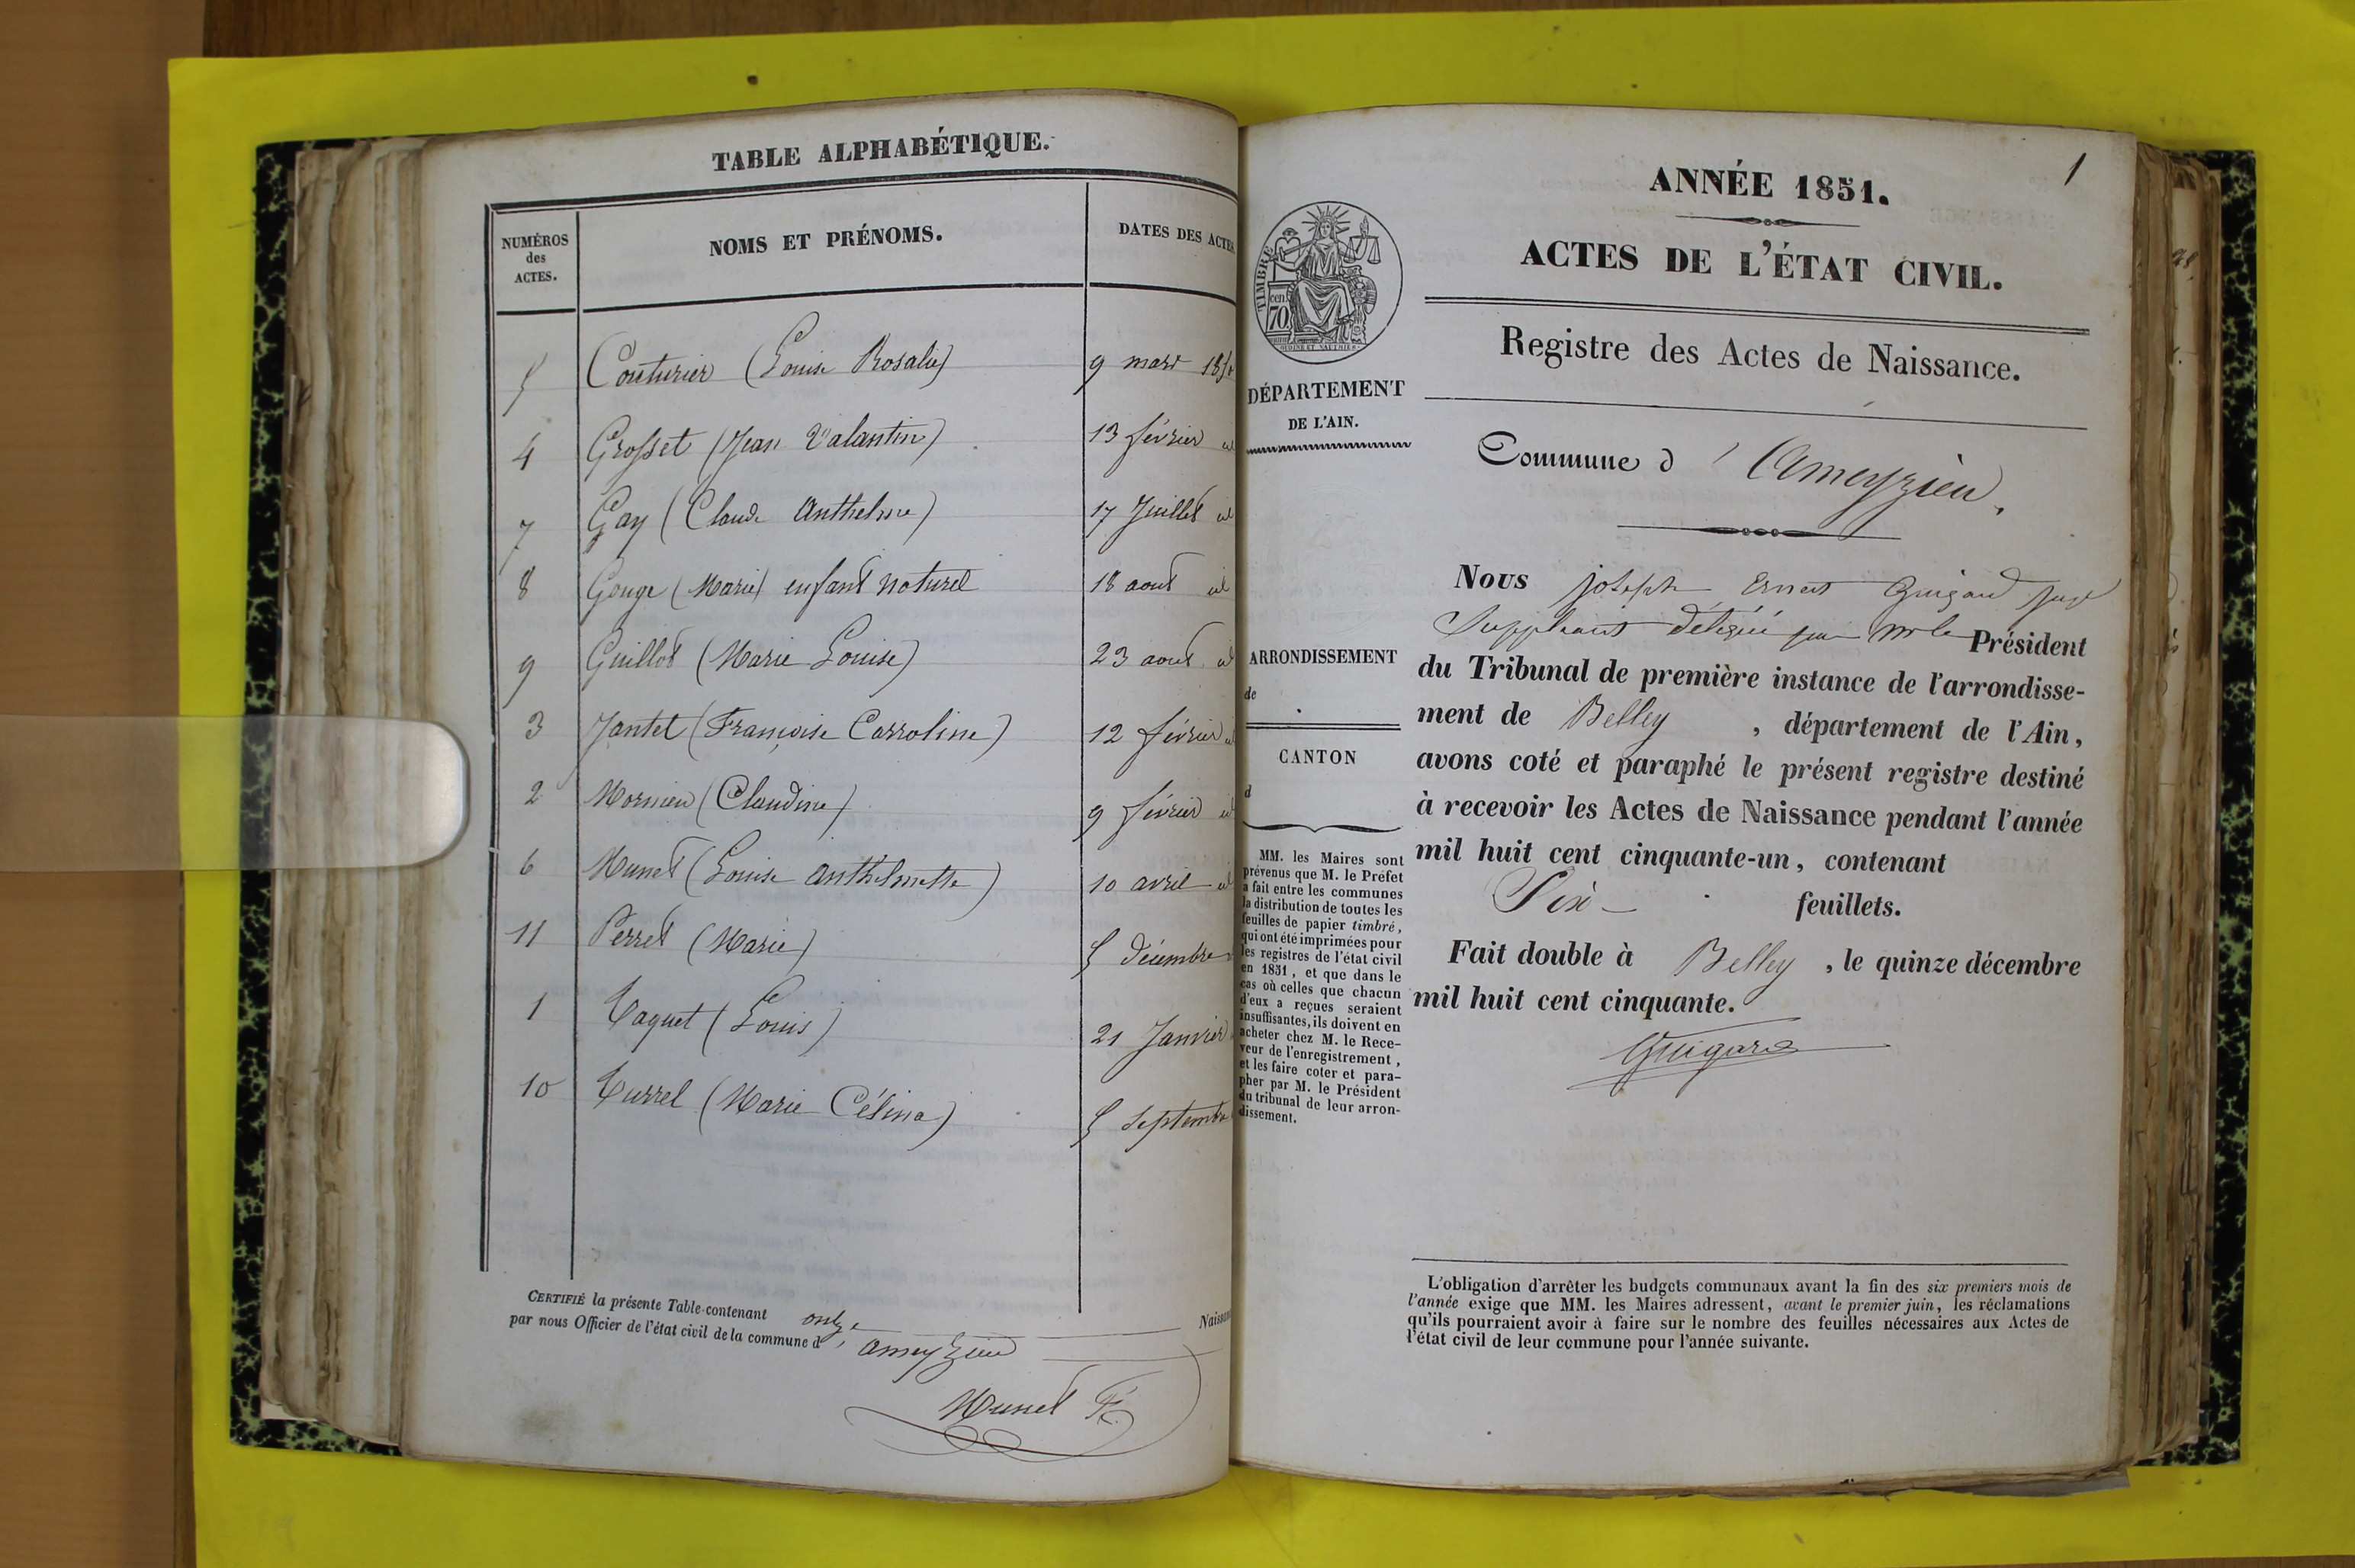 TABLE ALPHABÉTIQUE.
NUMÉROS des ACTES.
NOMS ET PRÉNOMS.
DATES DES ACTES
5 Couturier (Louise Rosalie) 9 mars 1850
4 Grosset (Jean Valantin) 13 février id
7 Gay (Claude Anthelme) 17 Juillet id
8 Gouge (Marie) enfant naturel 18 aout id
9 Guillot (Marie Louise) 23 aout id
3 Jantet (Françoise Carroline) 12 février id
2 Mornieu (Claudine) 9 février id
6 Munet (Louise Anthelmette) 10 avril id
11 Perret (Marie) 5 décembre
1 Taquet (Louis) 21 Janvier
10 Turrel (Marie Célina) 5 septembre
CERTIFIÉ la présente Table contenant onze Naissan
par nous Officier de l'état civil de la commune d' ameyzieu
Munet
1
ANNÉE 1851.
ACTES DE L'ÉTAT CIVIL.
Registre des Actes de Naissance.
TIMBRE
70 cen.
DÉPARTEMENT
DE L'AIN.
ARRONDISSEMENT
de
CANTON
d
MM. les Maires sont
prévenus que M. le Préfet
a fait entre les communes
la distribution de toutes les
feuilles de papier timbré,
qui ont été imprimées pour
les registres de l'état civil
en 1851, et que dans le
cas où celles que chacun
d'eux a reçues seraient
insuffisantes, ils doivent en
acheter chez M. le Rece-
veur de l'enregistrement,
et les faire coter et para-
pher par M. le Président
du tribunal de leur arron-
dissement.
Commune d' Ameyzieu.
Nous joseph Ernest Guigard juge
Suppléant délégué par Mr le Président
du Tribunal de première instance de l'arrondisse-
ment de Belley, département de l'Ain,
avons coté et paraphé le présent registre destiné
à recevoir les Actes de Naissance pendant l'année
mil huit cent cinquante-un, contenant
Six feuillets.
Fait double à Belley, le quinze décembre
mil huit cent cinquante.
Guigard
L'obligation d'arrêter les budgets communaux avant la fin des six premiers mois de
l'année exige que MM. les Maires adressent, avant le premier juin, les réclamations
qu'ils pourraient avoir à faire sur le nombre des feuilles nécessaires aux Actes de
l'état civil de leur commune pour l'année suivante.